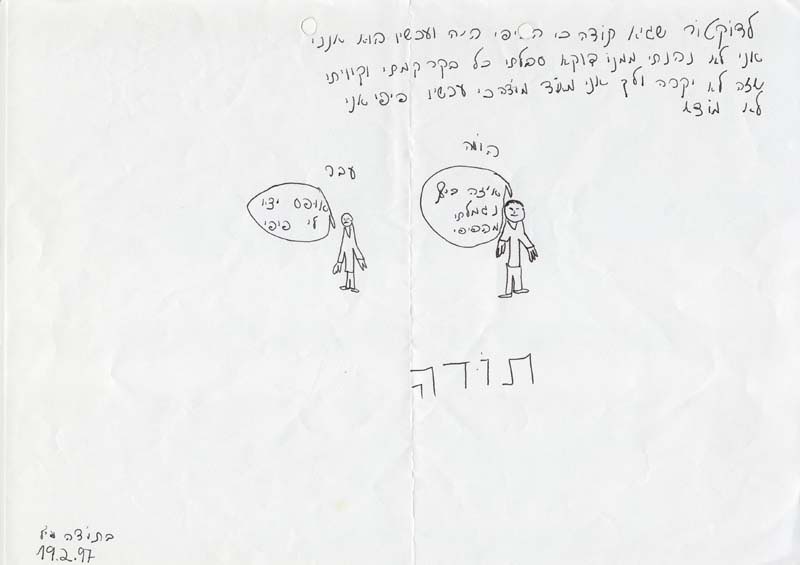 לדוֹקטוֹר שגיא תוֹדה כי הפיפי היה ועכשיו הוא אנני
אני לא נהנתי ממנוֹ דוקא סבלתי כל בקר קמתי וקיויתי
שזה לא יקרה ולך אני מאד מוֹדה כי עכשיו פיפי אני
לא
היוֹם
איזה כיף
נגמלתי
מהפיפי
עבר
אופס יצא
לי פיפי
תוֹדה
בתוֹדה
19.2.97